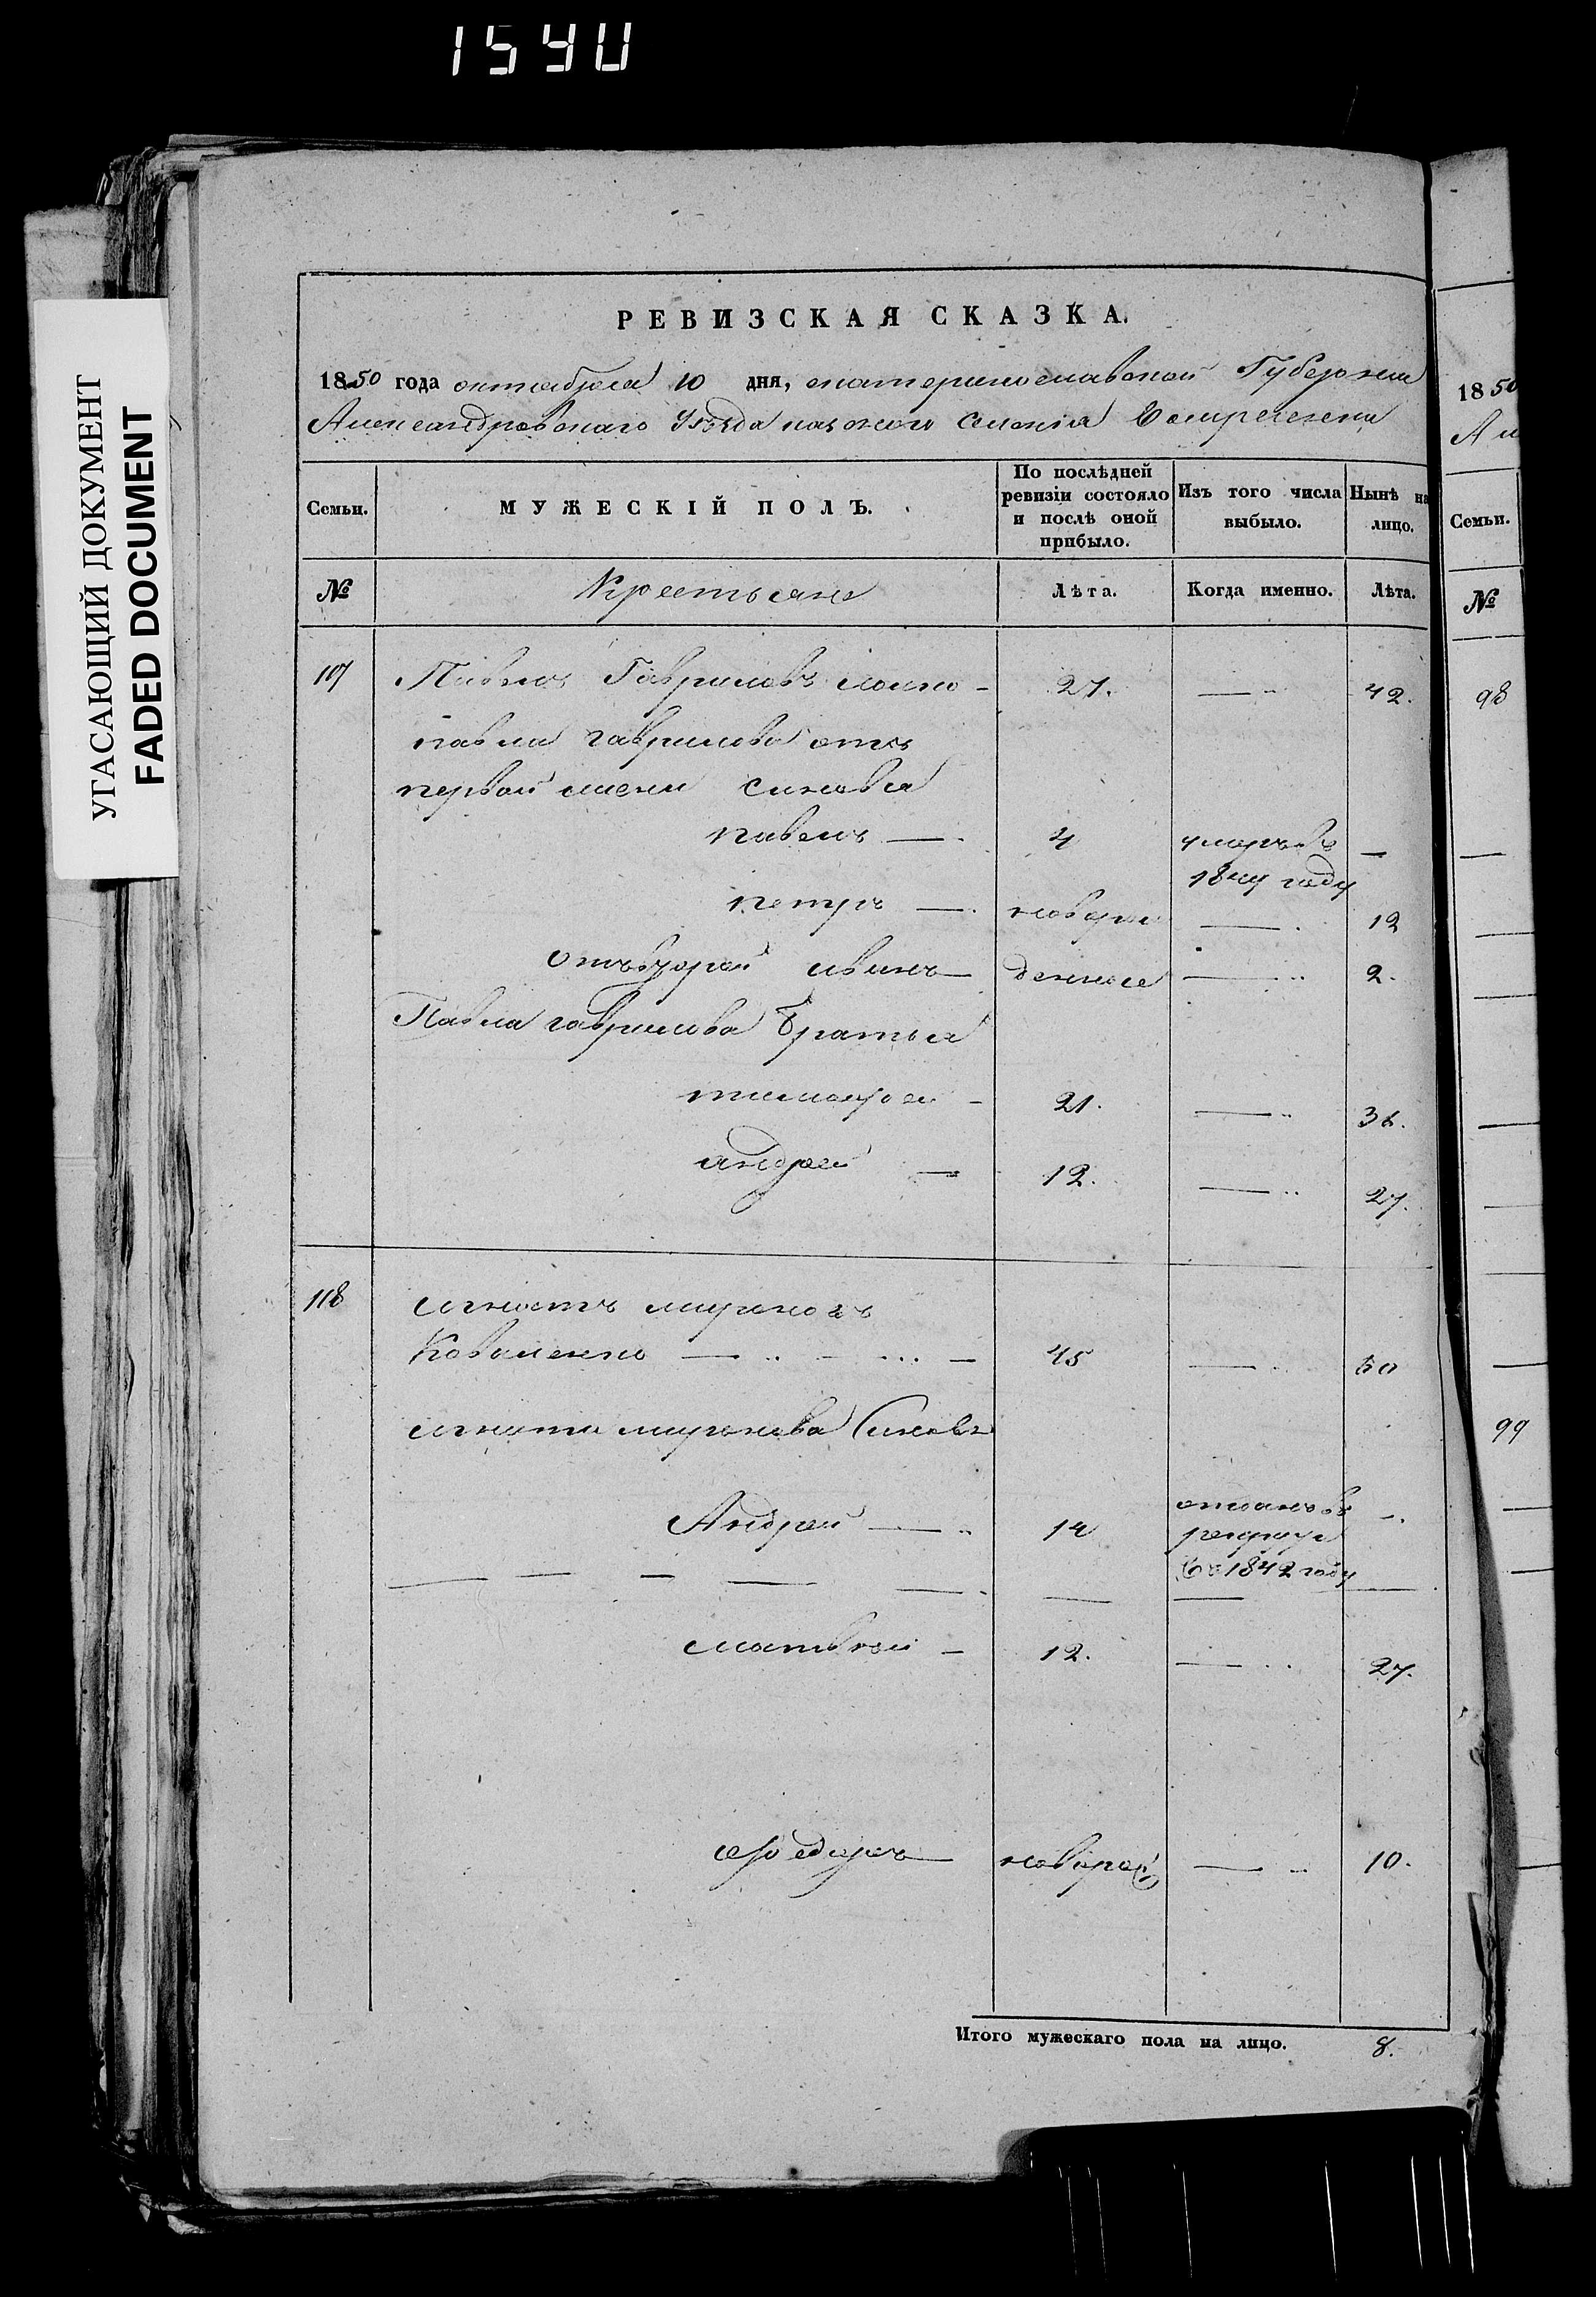 1540
УГАСАЮЩИЙ ДОКУМЕНТ
FADED DOCUMENT
РЕВИЗСКАЯ СКАЗКА.
1850 года октября 10 дня, екатеринославской Губернии
Александровскаго Уѣзда казенного селенія
Семьи. МУЖЕСКІЙ ПОЛЪ. По послѣдней ревизіи состояло и послѣ оной прибыло. Изъ того числа выбыло. Нынѣ на лицо.
№ Крестьяне Лѣта. Когда именно. Лѣта.
Павелъ Гавриловъ 27. — 42.
павла гаврилова отъ
первой жени синовья
павелъ — 4 умеръ въ —
18 году
петръ — новорож — 12
отъ второй иванъ — денные — 2.
Павла гаврилова братья
тимофей - 21. — 36.
андрей — 12. — 27.
118 игнатъ мироновъ
Коваленко — 45 — 60
игната миронова синовья
Андрей — 14 отданъ въ —.
рекруты
въ 1842 году
матвѣй - 12. — 27.
новорож — 10.
Итого мужескаго пола на лицо. 8.
1850
Ал
Семьи.
№
98
99